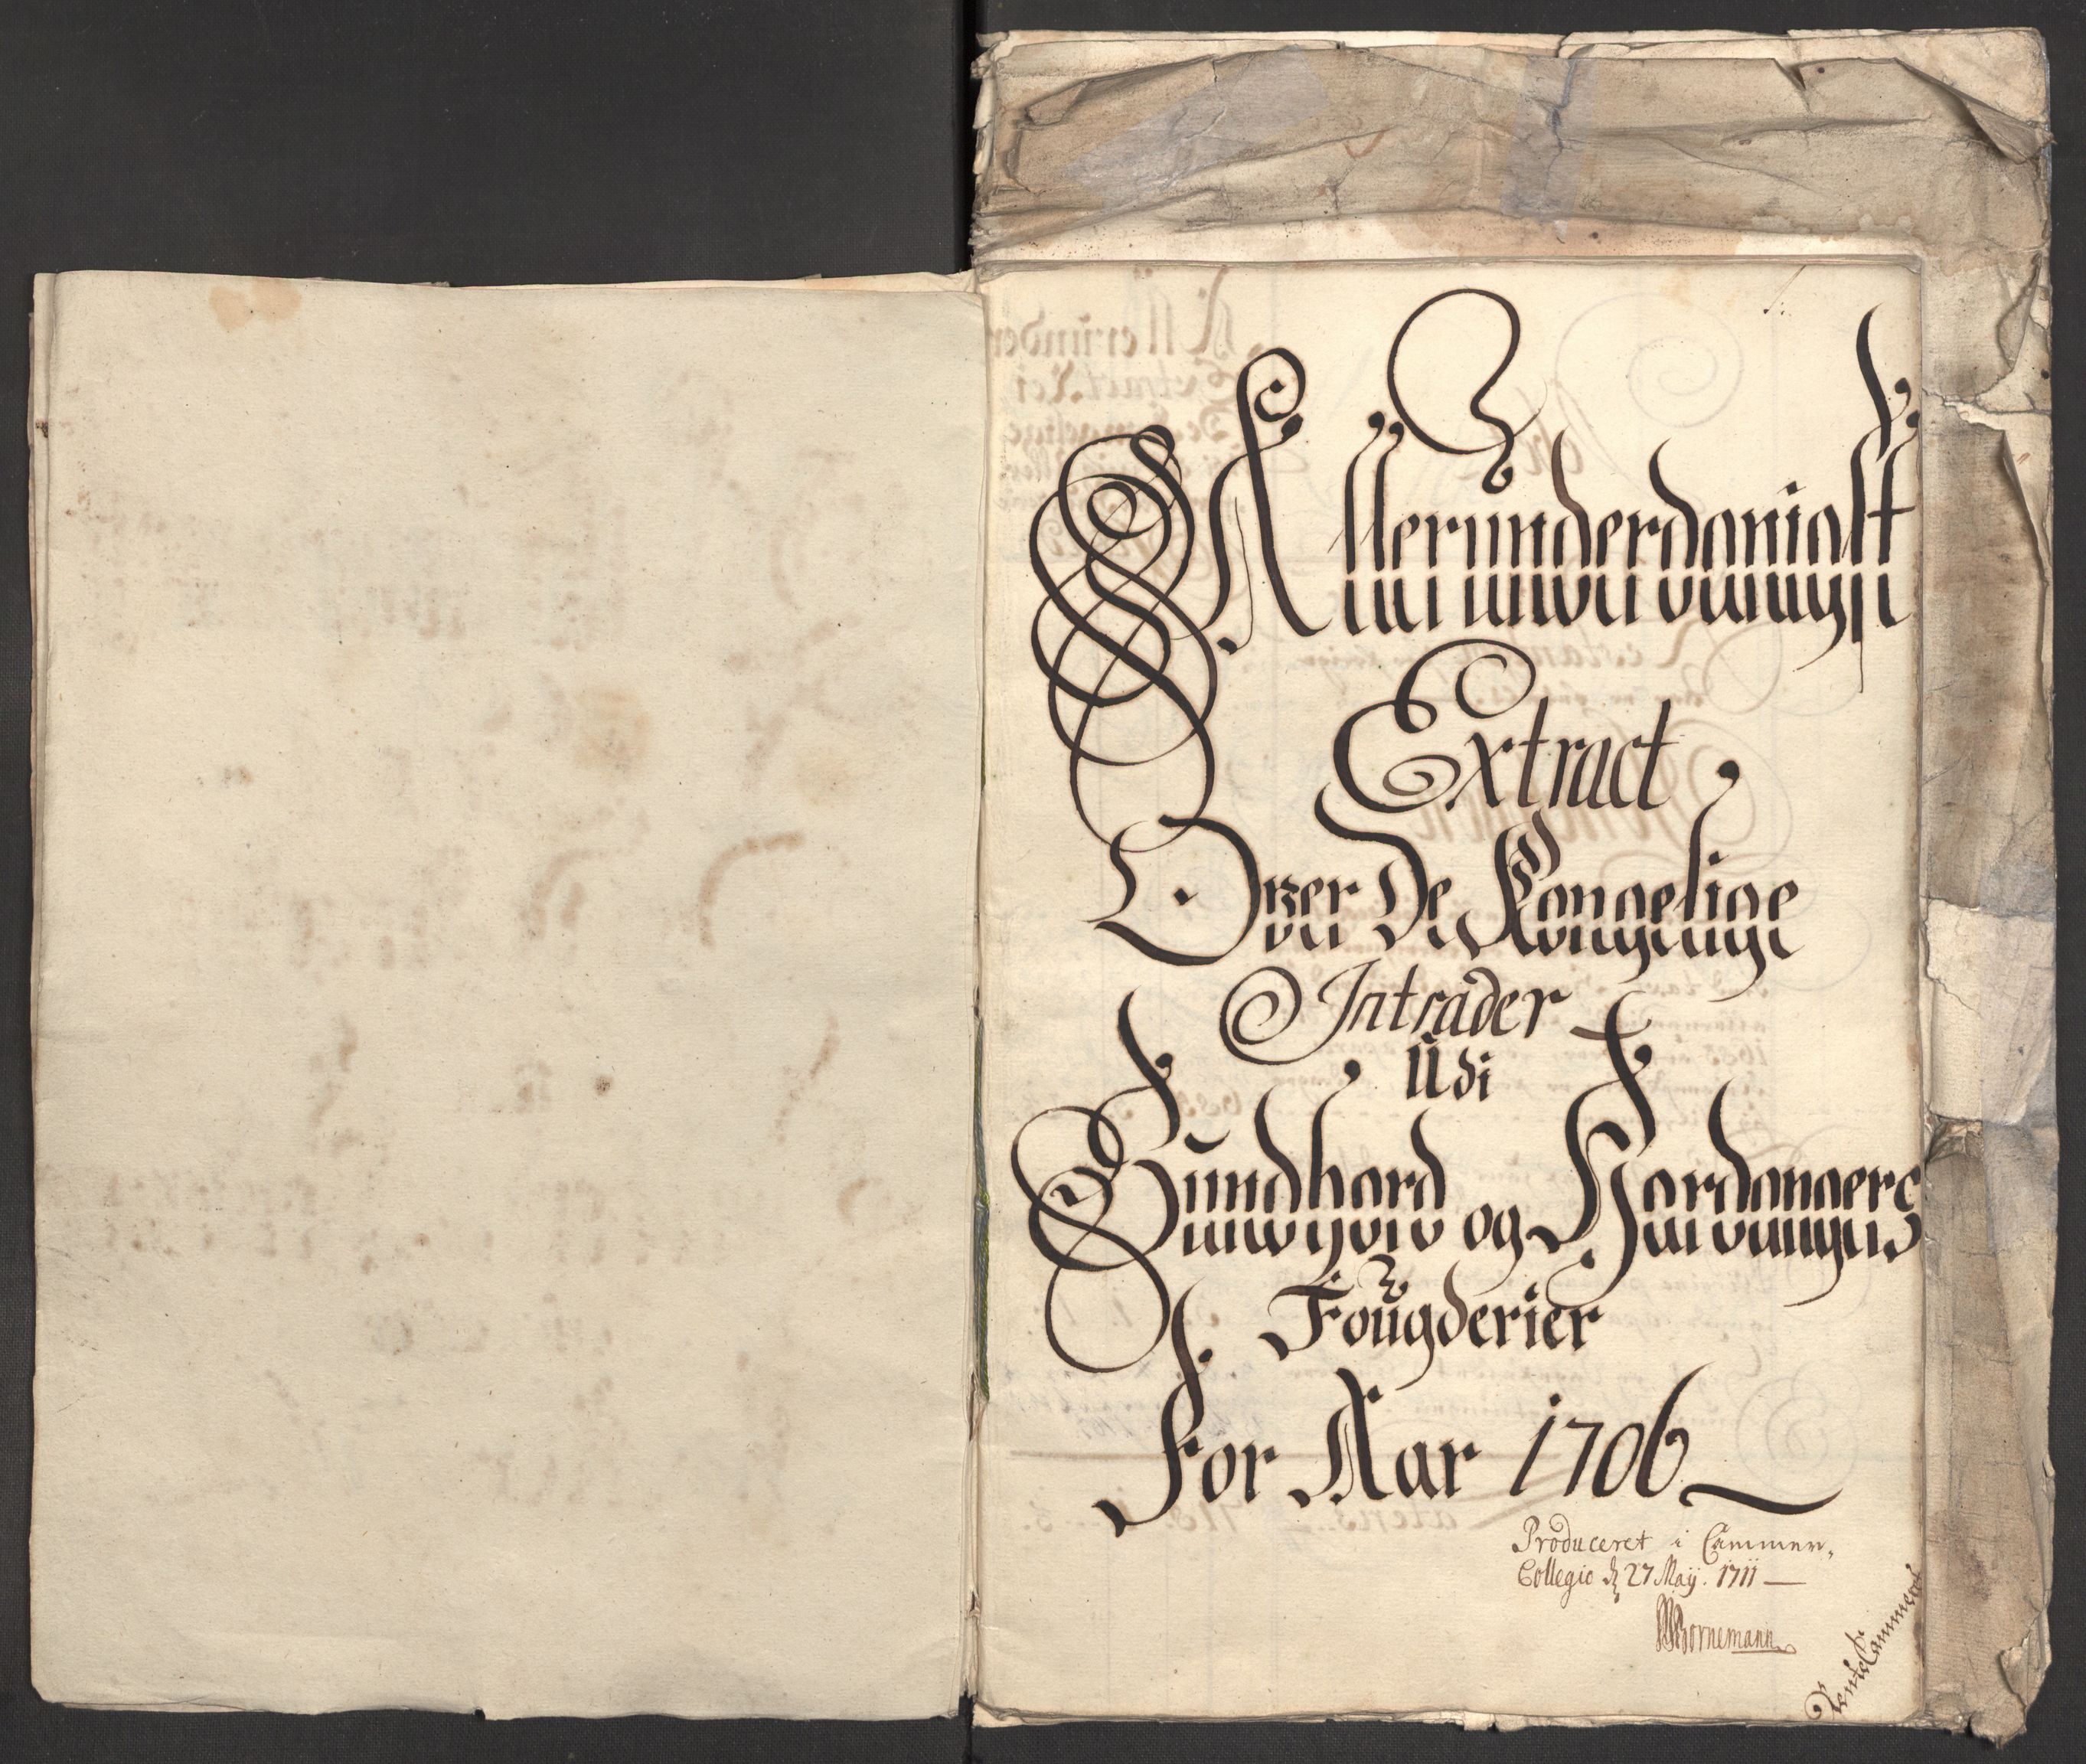 1.
Allerunderdanigst
Extract
Over De Kongelige
Intrader
Udi
Sundhord og Hardangers
Fougderier
For Aar 1706
Produceret i Cammer,
Collegio d 27 Maij. 1711
Bornemann
RenteCammeret